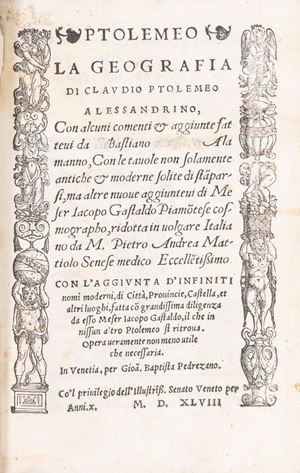 PTOLEMEO
LA GEOGRAFIA
DI CLAVDIO PTOLEMEO
ALESSANDRINO,
Con alcuni comenti & aggiunte fat
teui da Sebastiano Ala
manno, Con le tauole non solamente
antiche & moderne solite di stãpar
si, ma altre nuoue aggiunteui di Me
ser Iacopo Gastaldo Piamõtese cos
mographo, ridotta in volgare Italia
no da M. Pietro Andrea Mat
tiolo Senese medico Eccellẽtissimo
CON L'AGGIVNTA D'INFINITI
nomi moderni, di Città, Prouincie, Castella, et
altri luoghi, fatta cõ grandissima diligenza
da esso Meser Iacopo Gastaldo, il che in
nissun altro Ptolemeo si ritroua.
Opera veramente non meno utile
che necessaria.
In Venetia, per Gioã. Baptista Pedrezano.
Co'l priuilegio dell'Illustriss. Senato Veneto per
Anni. x. M. D. XLVIII